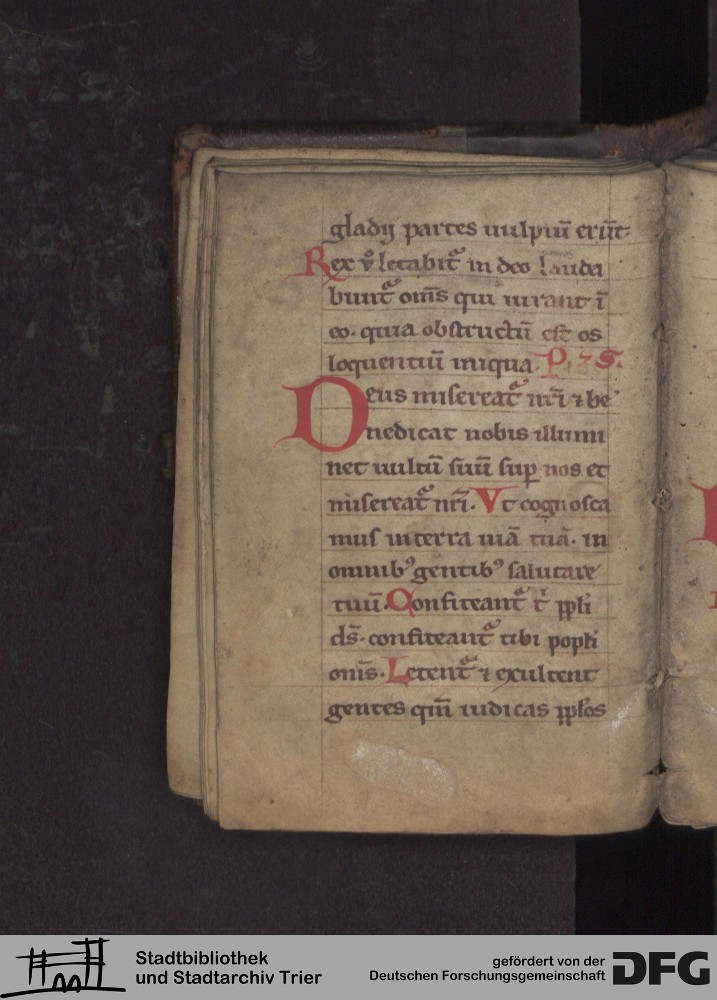 gladij partes uulpiū erūt
Rex v̊ letabit᷑ in deo lauda
bunt᷑ om̄s qui iurant ī
eo. quia obstructū est os
loquentiū iniqua. Ps
Deus misereat᷑ nr̄i ⁊ be
nedicat nobis illumi
net uultū suū suꝑ nos et
misereat᷑ nr̄i. Vt cognosca
mus in terra uiā tuā. in
omnibꝰ gentibꝰ salutare
tuū. Confiteant᷑ t̄ ppli
ds̄. confiteant᷑ tibi popłi
om̄s. Letent᷑ ⁊ exultent
gentes qm̄ iudicas ppłos
Stadtbibliothek
und Stadtarchiv Trier
gefördert von der
Deutschen Forschungsgemeinschaft
DFG